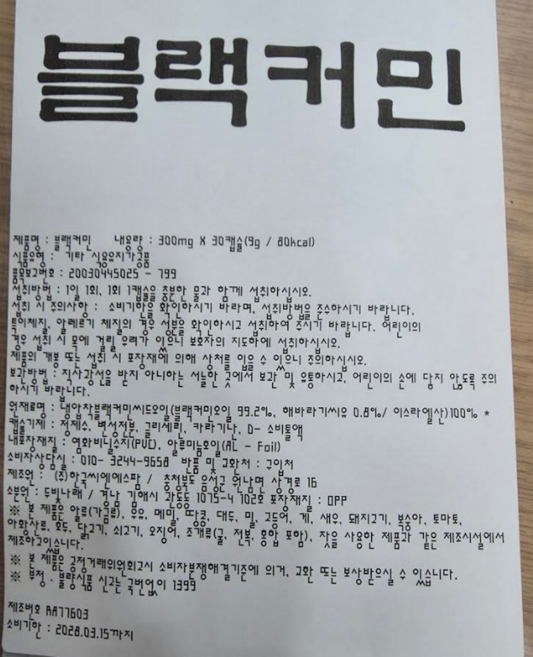 블랙커민
제품명 : 블랙커민 내용량 : 300mg X 30캡슐(9g / 80kcal)
식품유형 : 기타 식용유지가공품
품목보고번호 : 20030445025 - 799
섭취방법 : 1일 1회, 1회 1캡슐을 충분한 물과 함께 섭취하십시오.
섭취 시 주의사항 : 소비기한을 확인하시기 바라며, 섭취방법을 준수하시기 바랍니다.
특이체질, 알레르기 체질의 경우 성분을 확인하시고 섭취하여 주시기 바랍니다. 어린이의
경우 섭취 시 목에 걸릴 우려가 있으니 보호자의 지도하에 섭취하십시오.
제품의 개봉 또는 섭취 시 포장재에 의해 상처를 입을 수 있으니 주의하십시오.
보관방법 : 직사광선을 받지 아니하는 서늘한 곳에서 보관 및 유통하시고, 어린이의 손에 닿지 않도록 주의
하시기 바랍니다.
원재료명 : 냉압착블랙커민씨드오일(블랙커민오일 99.2%, 해바라기씨유 0.8%/ 이스라엘산)100% *
캡슐기제 : 정제수, 변성전분, 글리세린, 카라기난, D- 소비톨액
내포장재질 : 염화비닐수지(PVC), 알루미늄호일(AL - Foil)
소비자상담실 : 010- 3244-9658 반품 및 교환처 : 구입처
제조원 : (주)한국씨엔에스팜 / 충청북도 음성군 원남면 상경로 16
소분원 : 도빛나래 / 경남 김해시 관동동 1075-4 102호 포장재질 : OPP
※ 본 제품은 알류(가금류), 우유, 메밀, 땅콩, 대두, 밀, 고등어, 게, 새우, 돼지고기, 복숭아, 토마토,
아황산류, 호두, 닭고기, 쇠고기, 오징어, 조개류(굴, 전복, 홍합 포함), 잣을 사용한 제품과 같은 제조시설에서
제조하고있습니다.
※ 본 제품은 공정거래위원회고시 소비자분쟁해결기준에 의거, 교환 또는 보상받으실 수 있습니다.
※ 부정 · 불량식품 신고는 국번없이 1399
제조번호 RA77603
소비기한 : 2028.03.15까지